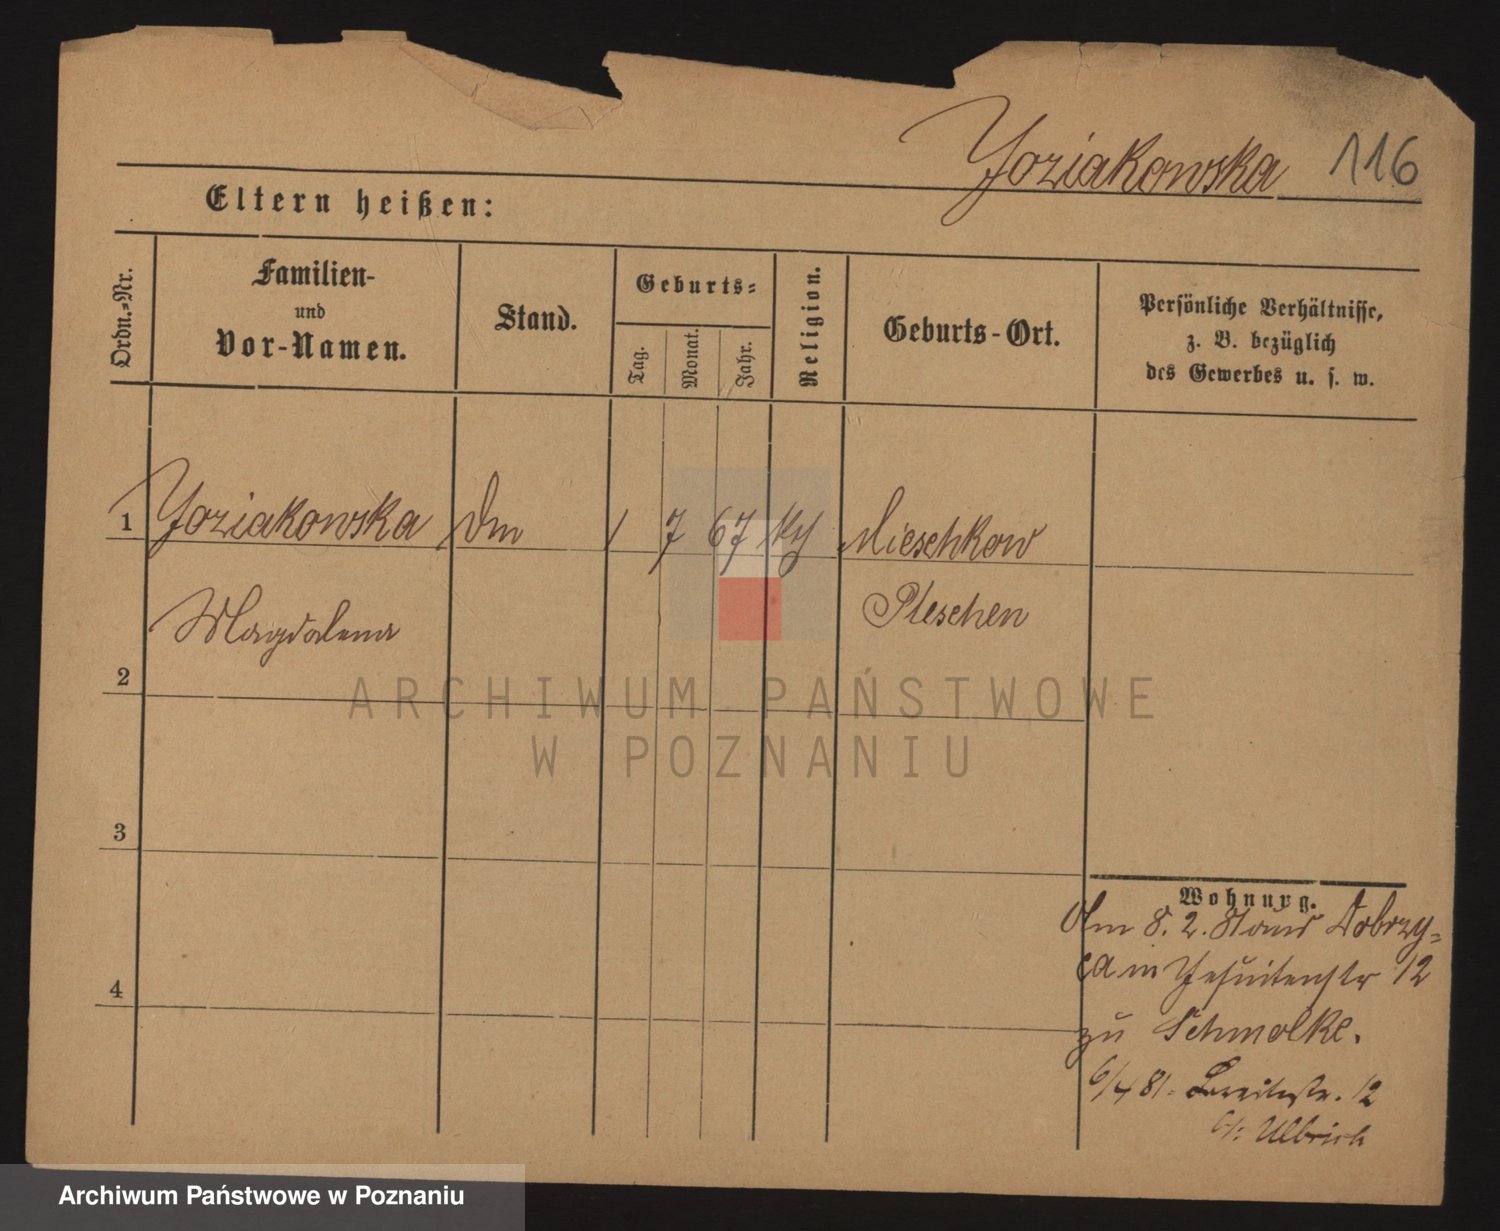 Joziakowska 116
Eltern heißen:
Ordn.-Nr.
Familien-
und
Vor-Namen.
Stand.
Geburts-
Tag.
Monat.
Jahr.
Religion.
Geburts-Ort.
Persönliche Verhältnisse,
z. B. bezüglich
des Gewerbes u. s. w.
1 Joziakowska Dm 1 7 67 kth Mieschkow
Magdalena Pleschen
2
ARCHIWUM PAŃSTWOWE
W POZNANIU
3
Wohnung.
Am 8. 2. Dobrzy-
ca in Jesuitenstr 12
zu Schmolke.
4
6/4 81. Breitestr. 12
b/: Ulbrich
Archiwum Państwowe w Poznaniu